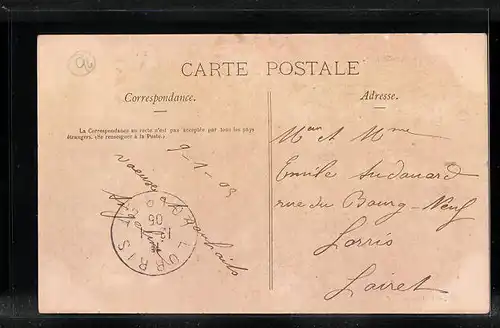 96
CARTE POSTALE
Correspondance.
La Correspondance au recto n'est pas acceptée par tous les pays
étrangers. (Se renseigner à la Poste.)
9-1-05
LORRIS
05
Adresse.
Mr et Mme
Emile Audouard
rue du Bourg-Neuf
Lorris
Loiret